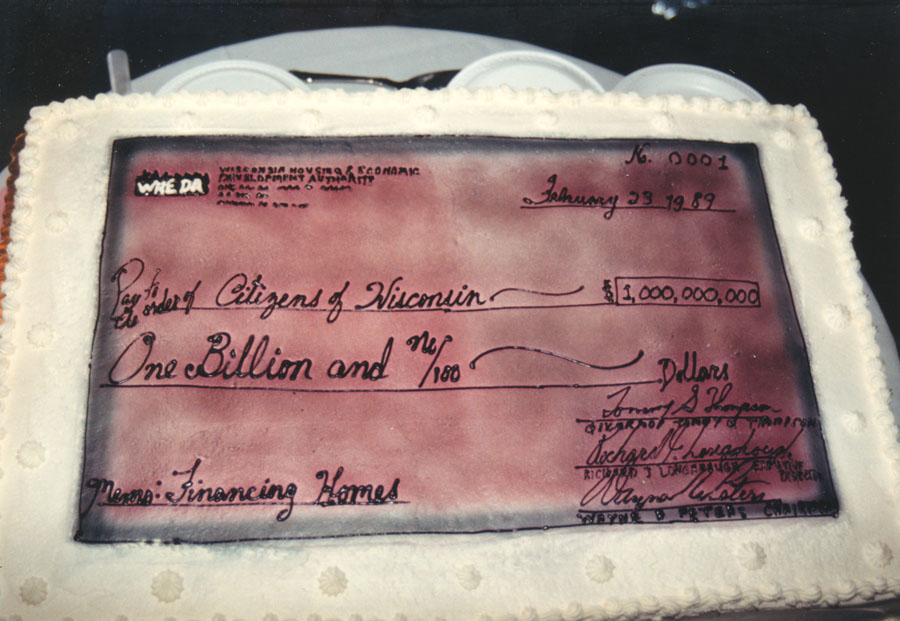 No. 0001
WHEDA
WISCONSIN HOUSING & ECONOMIC
DEVELOPMENT AUTHORITY
February 23 1989
Pay to
the order of Citizens of Wisconsin $ 1,000,000,000
One Billion and no/100 Dollars
Tommy G Thompson
TOMMY G THOMPSON
Richard J Longabaugh
RICHARD J LONGABAUGH EXECUTIVE
DIRECTOR
Memo: Financing Homes
Wayne Peters
WAYNE PETERS CHAIRMAN